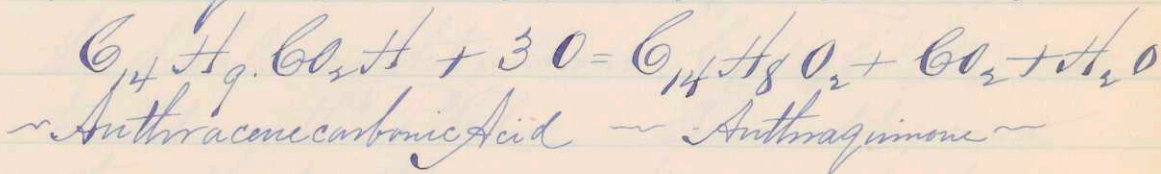 C₁₄H₉.CO₂H + 3O = C₁₄H₈O₂ + CO₂ + H₂O
~ Anthracenecarbonic Acid ~ Anthraquinone ~